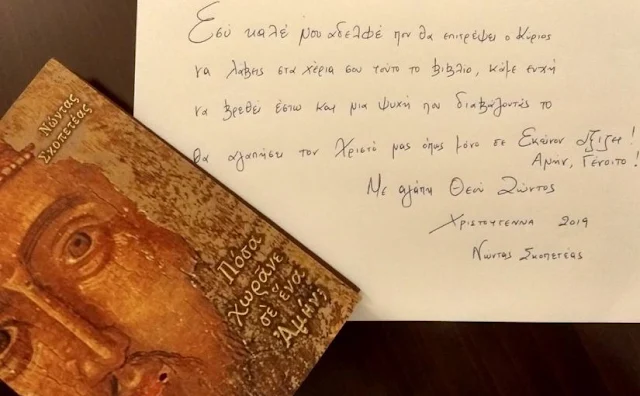 Εσύ καλέ μου αδελφέ που θα επιτρέψει ο Κύριος
να λάβεις στα χέρια σου τούτο το βιβλίο, κάμε ευχή
να βρεθεί έστω και μια ψυχή που διαβάζοντάς το
θα αγαπήσει τον Χριστό μας όπως μόνο σε Εκείνον αξίζει!
Αμήν, Γένοιτο!
Με αγάπη Θεού Ζώντος
Χριστουγεννα 2019
Νώντας Σκοπετέας
Νώντας
Σκοπετέας
Πόσα
χωρᾶνε
σὲ ἕνα
Ἀμήν;